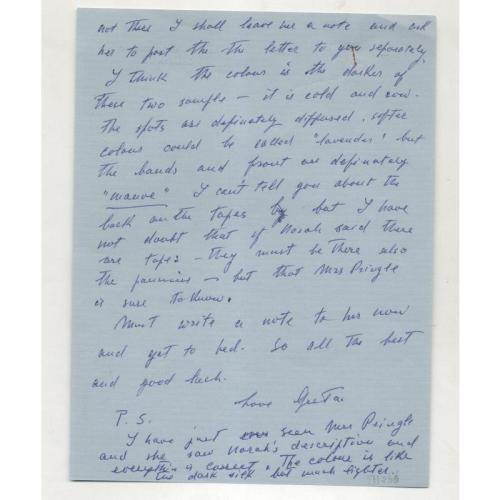 not there I shall leave her a note and ask
her to post the the letter to you separately.
I think the colour is the darker of
these two sample – it is cold and now.
The spots are definately diffused, softer
colour could be called "lavender" but
the bands and front are definately
"mauve" I can't tell you about the
back on the tapes but I have
not doubt that if Norah said there
are tapes – they must be there also
the – but that Mrs Pringle
is sure to know.
Must write a note to her now
and get to bed. So all the best
and good luck.
Love Greta
P.S.
I have just seen Mrs Pringle
and she saw Norah's description and
everything is correct. The colour is like
the dark silk but much lighter.